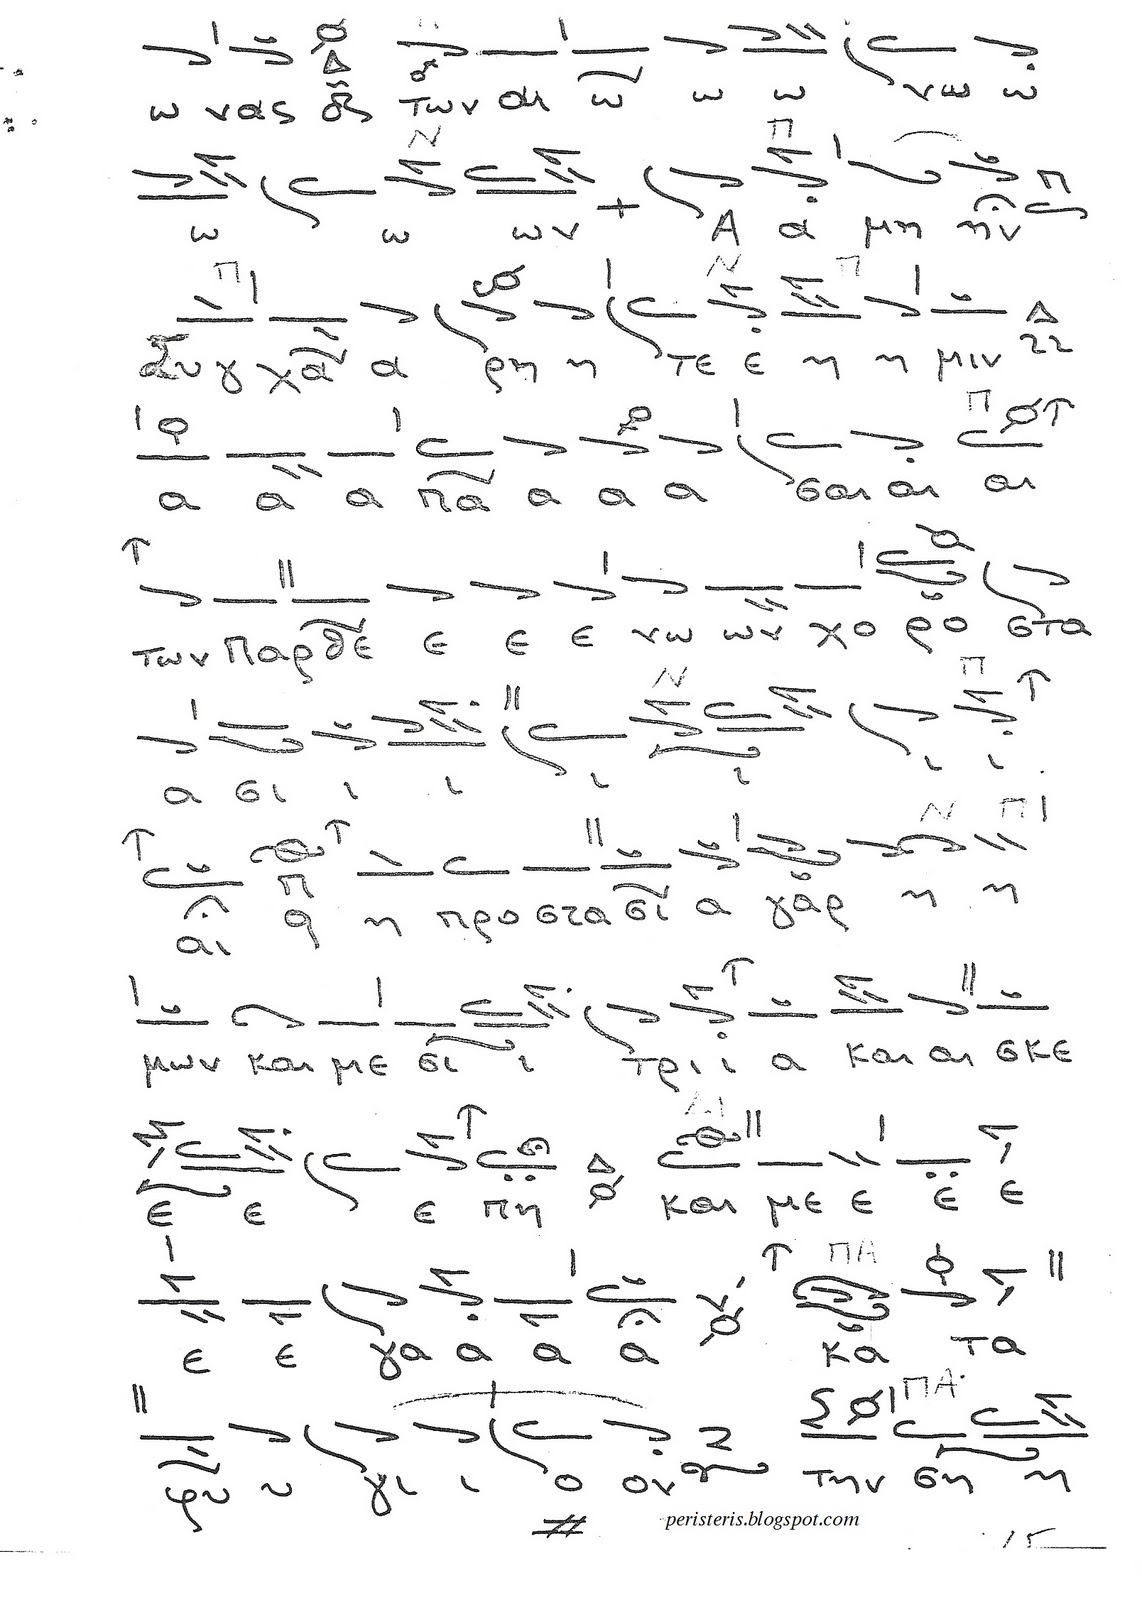 ω νας των αι ω ω ω νω ω
ω ω ων Α α μη ην
Συγ χα α ρη η τε ε η η μιν
α α α πα α α α σαι αι αι
των παρ θε ε ε ε νω ων χο ρο στα
α σι ι ι ι ι ι ι
αι η προ στα σι α γαρ η η
μων και με σι ι τρι ι α και αι σκε
ε ε ε πη και με ε ε ε
ε ε γα α α α κα τα
φυ υ γι ι ο ον την ση η
peristeris.blogspot.com
15